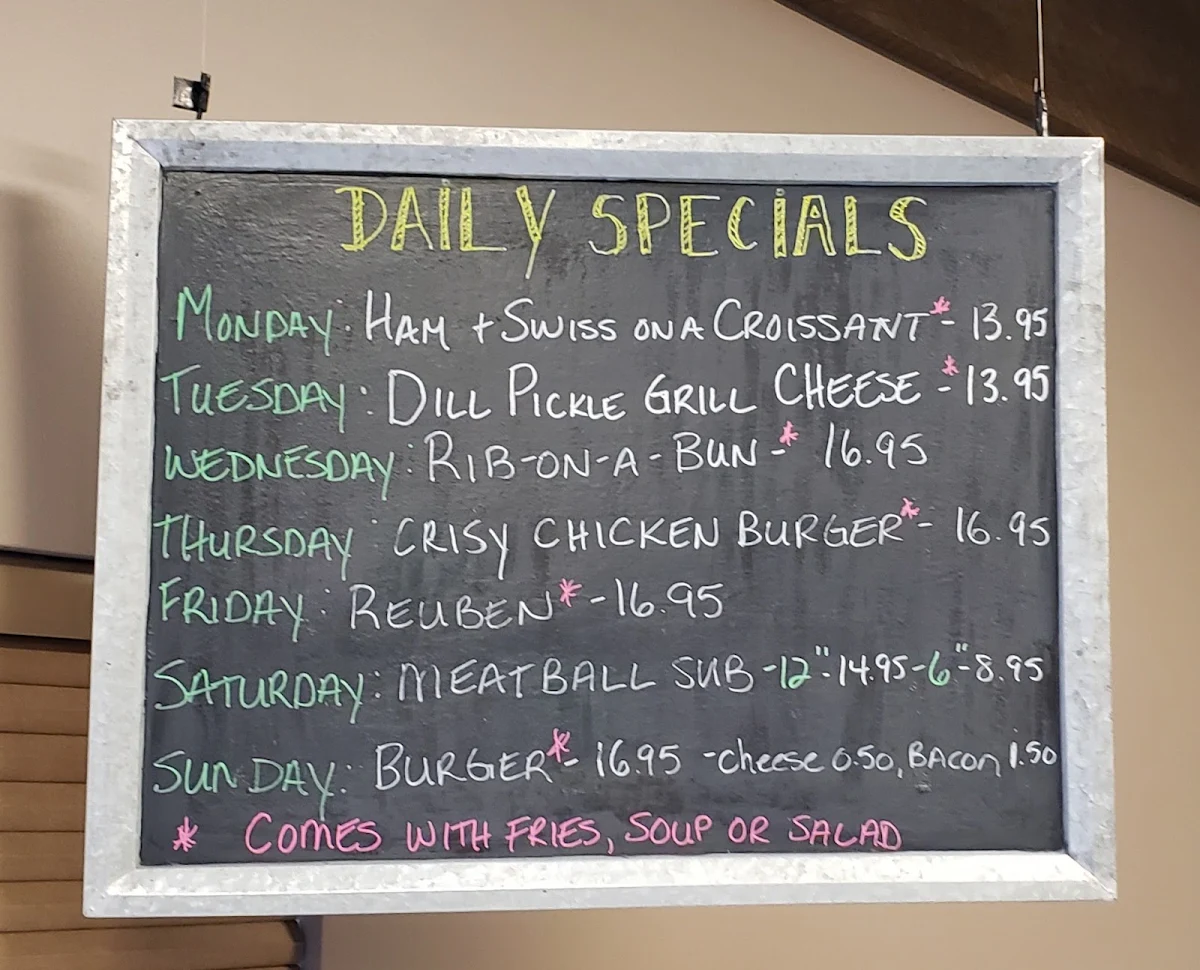 DAILY SPECIALS
MONDAY: HAM + SWISS ON A CROISSANT* - 13.95
TUESDAY: DILL PICKLE GRILL CHEESE -* 13.95
WEDNESDAY: RIB-ON-A-BUN -* 16.95
THURSDAY: CRISY CHICKEN BURGER* - 16.95
FRIDAY: REUBEN* - 16.95
SATURDAY: MEATBALL SUB - 12" - 14.95 - 6" - 8.95
SUNDAY: BURGER* - 16.95 - cheese 0.50, BACON 1.50
* COMES WITH FRIES, SOUP OR SALAD